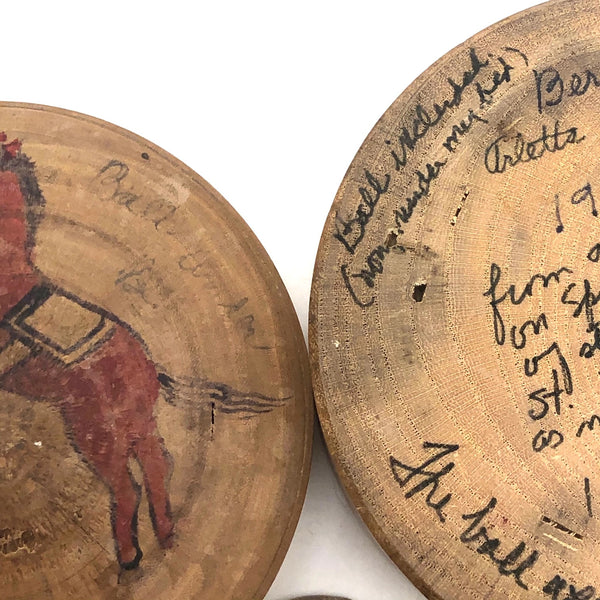 Ball
Ball included.
(now under my bed)
Ber
Arletta
19
from a
on Sp
of
St.
as m
1
The ball